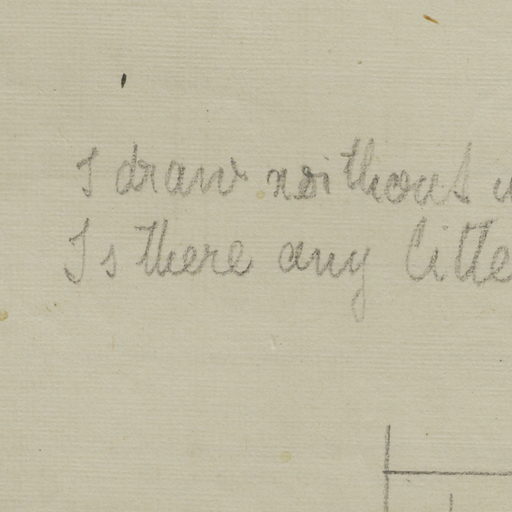 I draw without
Is there any little